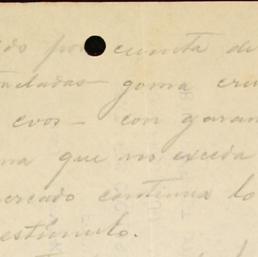 ido por cuenta de
ncladas - goma cru
evos - con garan
ma que no exceda
ercado continua lo
estímulo.